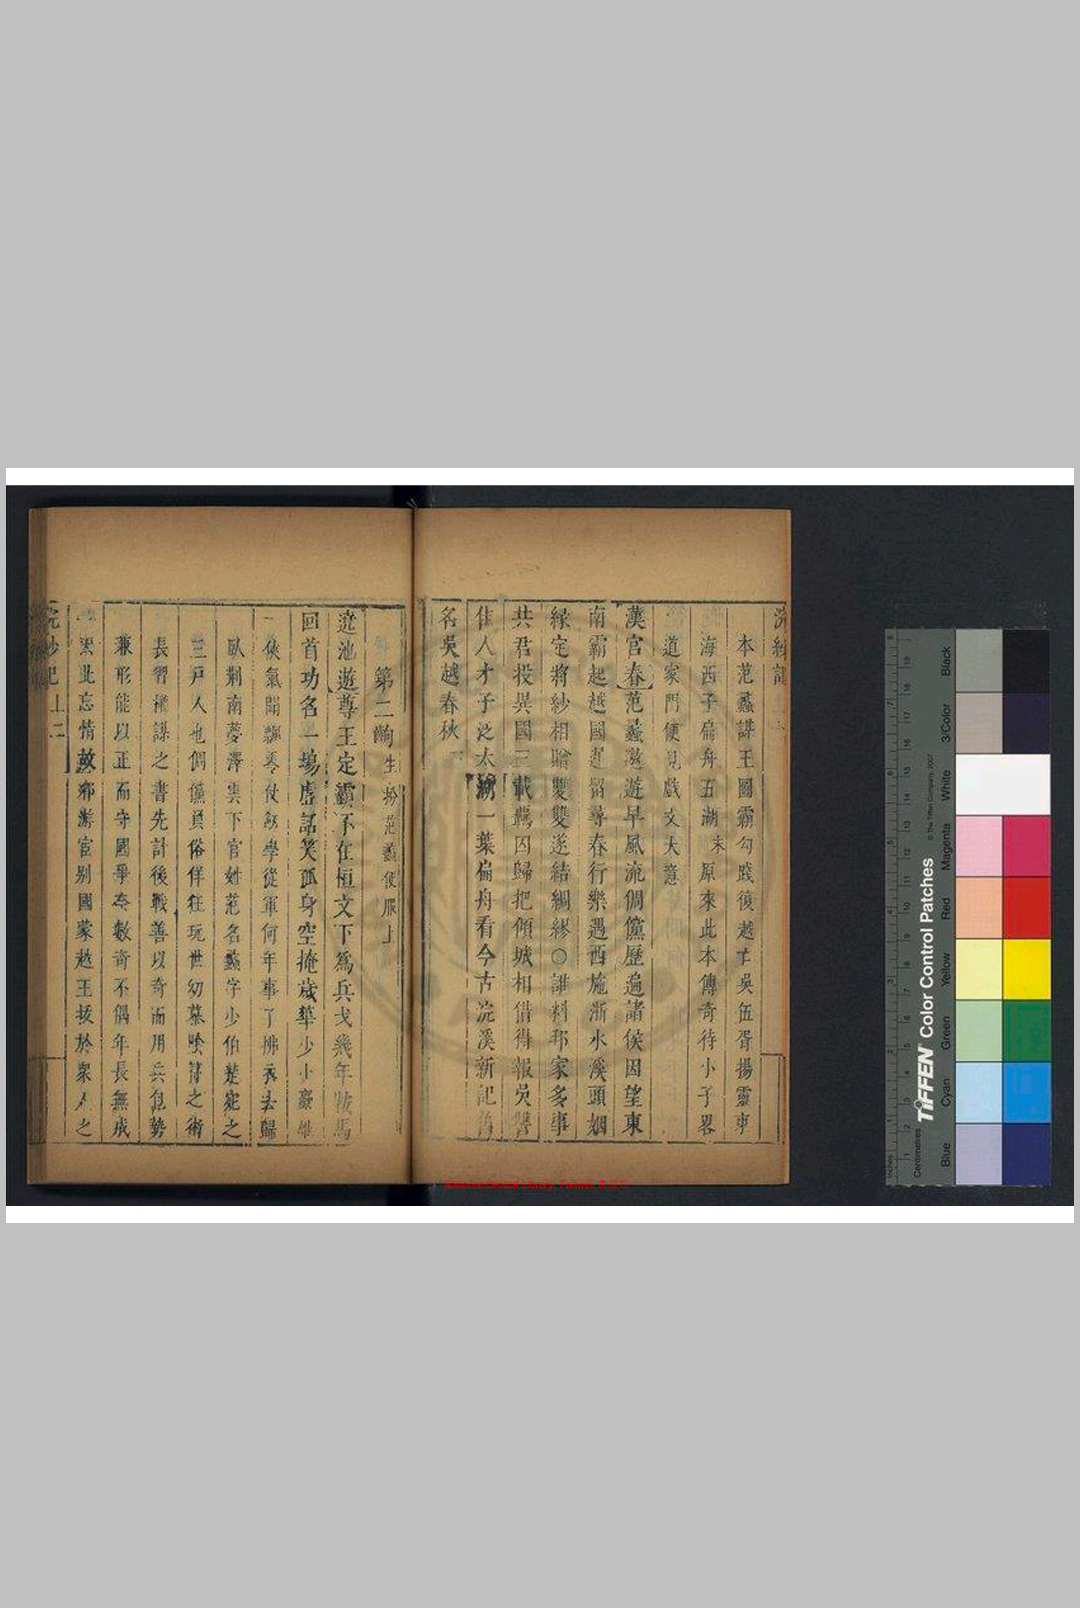 浣紗記
本范蠡謀王圖霸勾踐復越亡吳伍胥揚靈東
海西子扁舟五湖末原來此本傳奇待小子畧
道家門便見戲文大意
漢宮春范蠡遨遊早風流倜儻歷遍諸侯因望東
南霸起越國遲留尋春行樂遇西施浙水溪頭姻
緣定將紗相贈雙雙遂結綢繆○誰料邦家多事
共君投異國三載羈囚歸把傾城相借得報吳讐
佳人才子泛太湖一葉扁舟看今古浣溪新記舊
名吳越春秋下
第二齣生扮范蠡便服上
遶池遊尊王定霸不在桓文下爲兵戈幾年鞍馬
回首功名一場虛話笑孤身空掩歲華少小豪雄
俠氣聞飄零仗劒學從軍何年事了拂衣去歸
臥荊南夢澤雲下官姓范名蠡字少伯楚宛之
三戶人也倜儻負俗佯狂玩世幼慕陰符之術
長習權謀之書先計後戰善以奇而用兵包勢
兼形能以正而守國爭奈數奇不偶年長無成
因此忘情故鄉游宦別國蒙越王拔於眾人之
浣紗記 上 二
Black
3/Color
White
Magenta
Red
Yellow
Green
Cyan
Blue
TIFFEN Color Control Patches
© The Tiffen Company, 2007
Centimetres
Inches